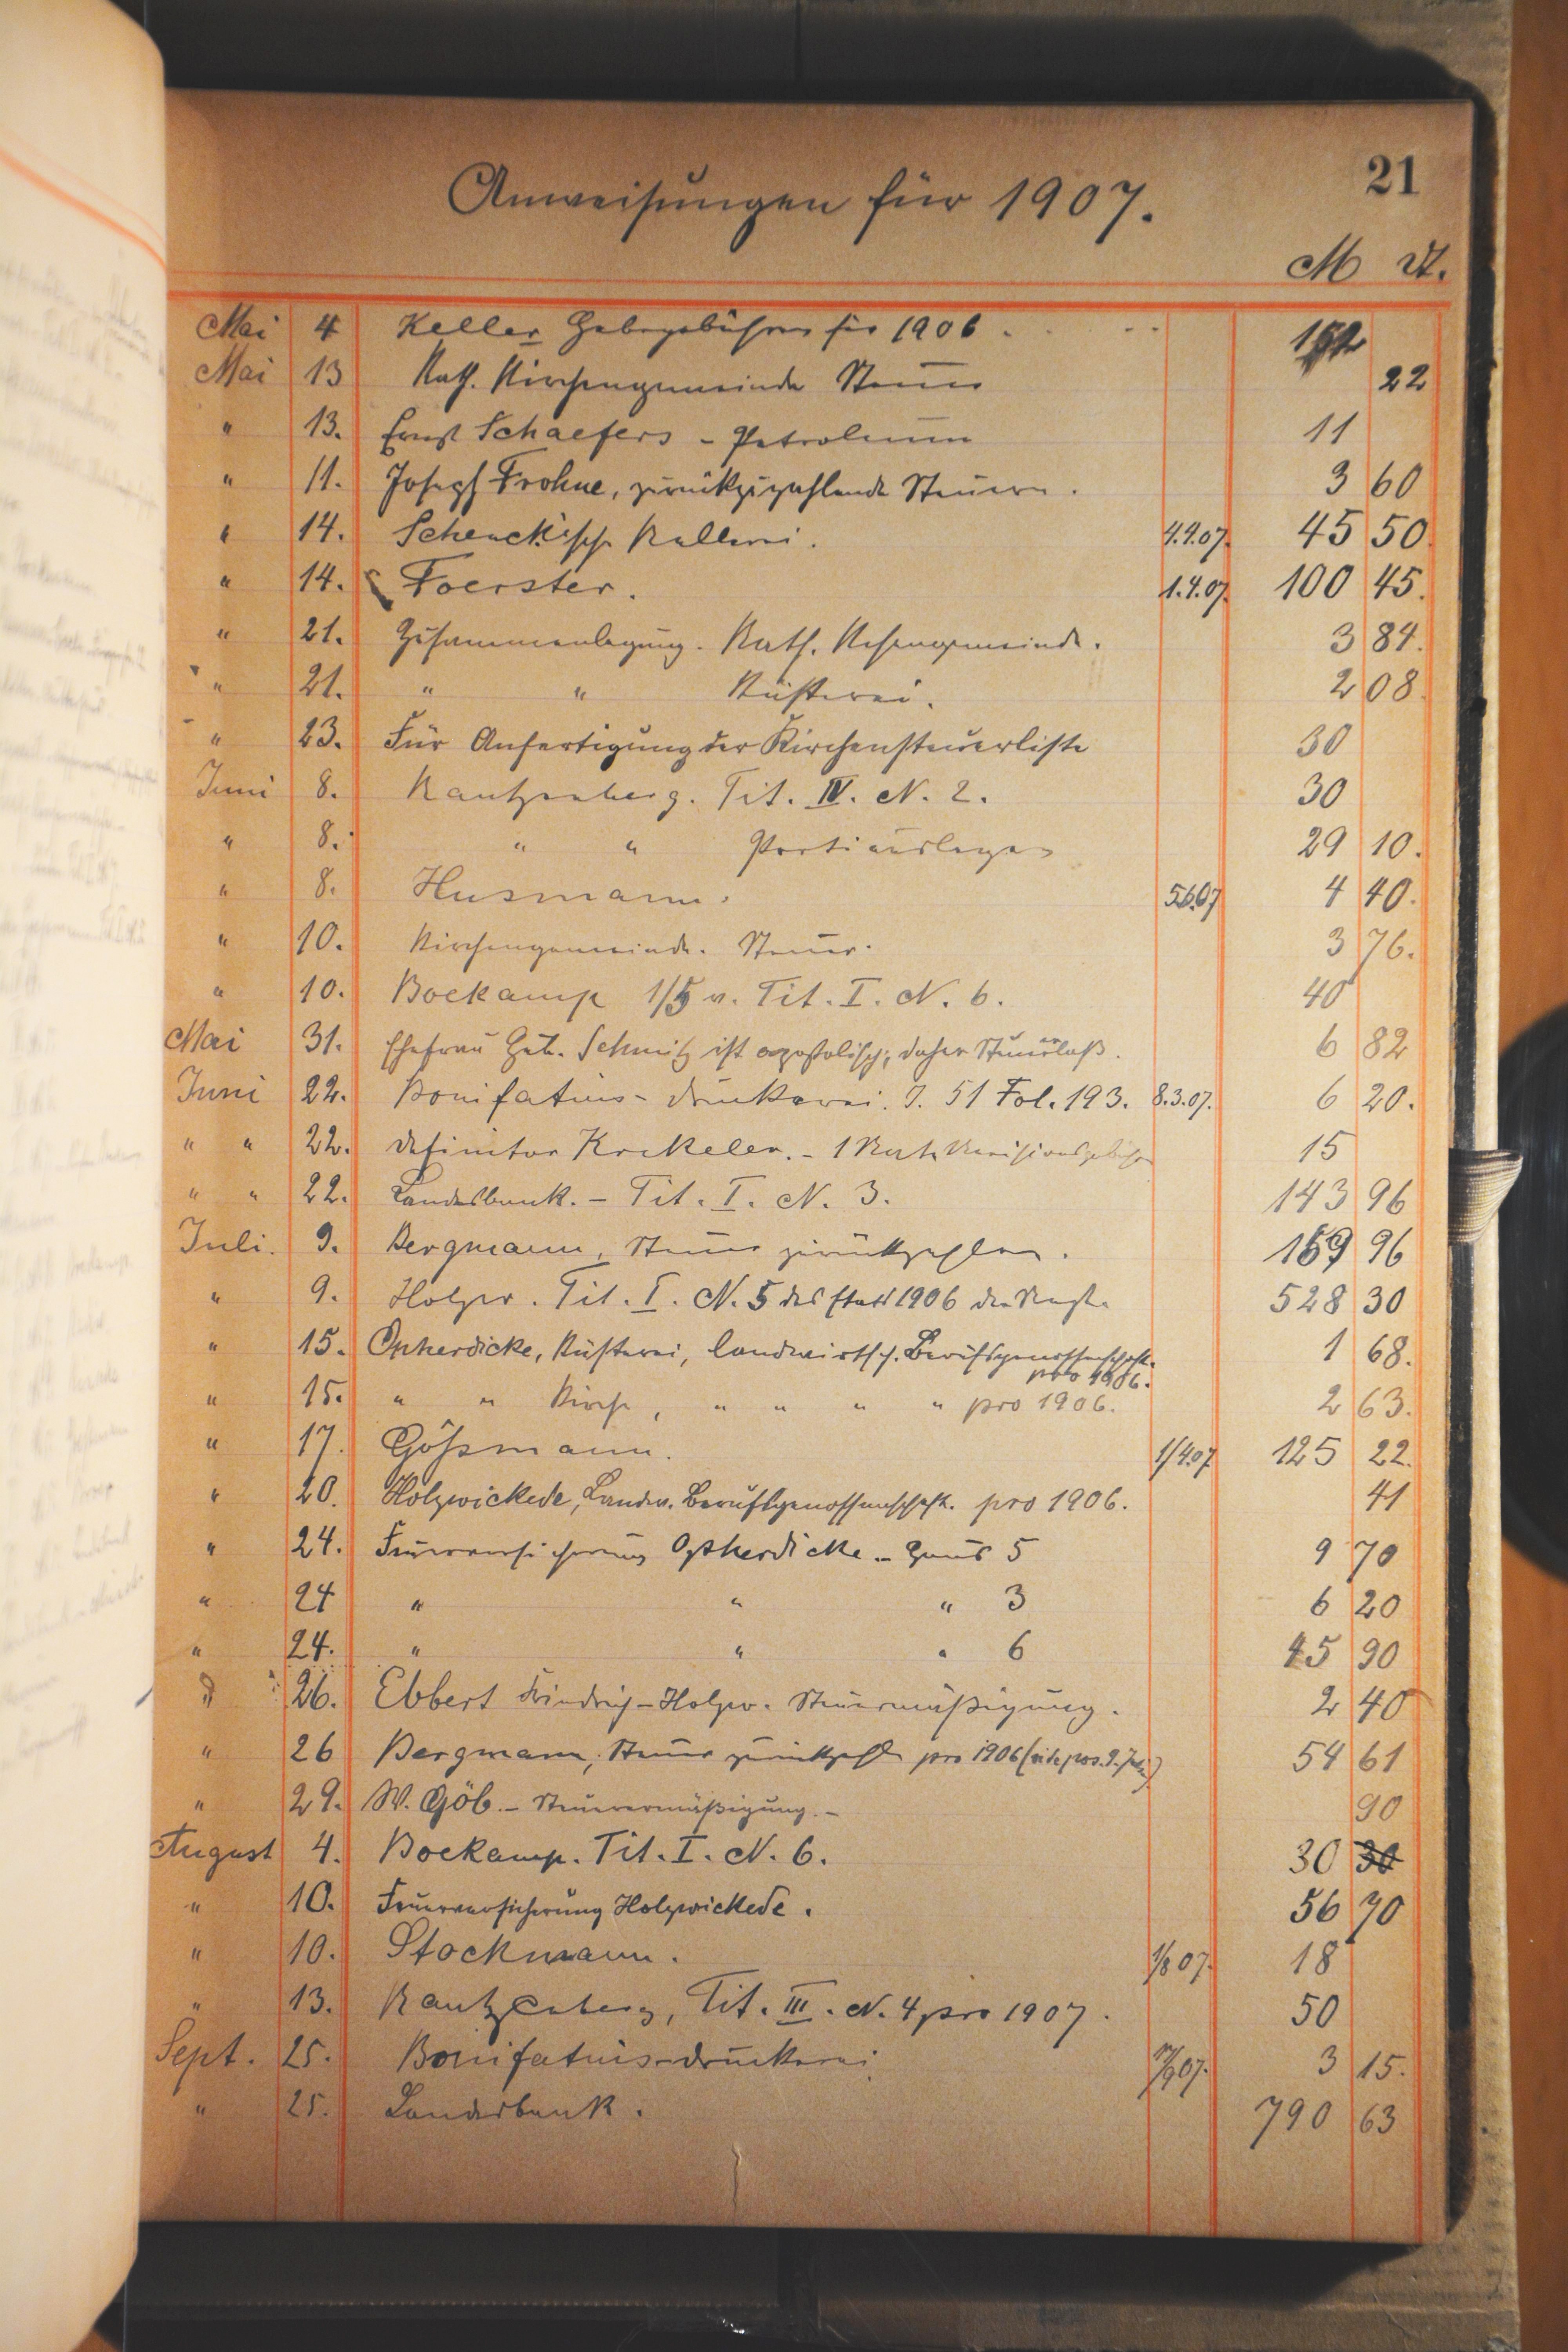 21
Anweisungen für 1907.
M ₰.
Mai 4 Keller Hebegebühren für 1906.
Mai 13 Kath. Kirchengemeinde Steuer 22
" 13. Ernst Schaefers - Petroleum 11
" 11. Joseph Frohne, zurückzuzahlende Steuern. 3 60
" 14. Schenck'sche 4.4.07. 45 50.
" 14. Foerster. 1.4.07. 100 45.
" 21. Zusammenlegung. Kath. Kchengemeinde. 3 84.
" 21. " " Küsterei. 2 08.
" 23. Für Anfertigung der Kirchensteuerliste 30
Juni 8. Kantzenberg. Tit. IV. N. 2. 30
" 8. " " Portiauslagen 29 10.
" 8. Husmann. 5.6.07 4 40.
" 10. Kirchengemeinde. Steuer. 3 76.
" 10. Boekamp 1/5 v. Tit. I. N. 6. 40
Mai 31. Ehefrau Geb. Schmitz ist apostolisch, daher Steuererlaß. 6 82
Juni 22. Bonifatius-druckerei. J. 51 Fol. 193. 8.3.07. 6 20.
" " 22. Definitor Krekeler. - 1 Revisionsgebühr 15
" " 22. Landesbank. - Tit. I. N. 3. 143 96
Juli. 9. Bergmann, Steuer zurückzahlen. 169 96
" 9. Holzw. Tit. I. N. 5 des Etats 1906 528 30
" 15. Opherdicke, Küsterei, landwirtsch. Berufsgenossenschaft. 1 68.
pro 1906.
" 15. " " Kirche, " " " " pro 1906. 2 63.
" 17. Gößmann. 1/4.07 125 22.
" 20. Holzwickede, Landw. Berufsgenossenschaft. pro 1906. 41
" 24. Feuerversicherung Opherdicke - Haus 5 9 70
" 24 " " " 3 6 20
" 24. " " " 6 45 90
" 26. Ebbert Friedrich - Holzw. Steuermäßigung. 2 40
" 26 Bergmann, Steuer zurückzahlen pro 1906 (vide pos. 9. Juli) 54 61
" 29. W. Göb. - Steuerermäßigung. - 90
August 4. Boekamp. Tit. I. N. 6. 30 30
" 10. Feuerversicherung Holzwickede. 56 70
" 10. Stockmann. 1/8 07. 18
" 13. Kantzenberg, Tit. III. N. 4 pro 1907. 50
Sept. 25. Bonifatius-druckerei 3 15.
" 25. Landesbank. 790 63